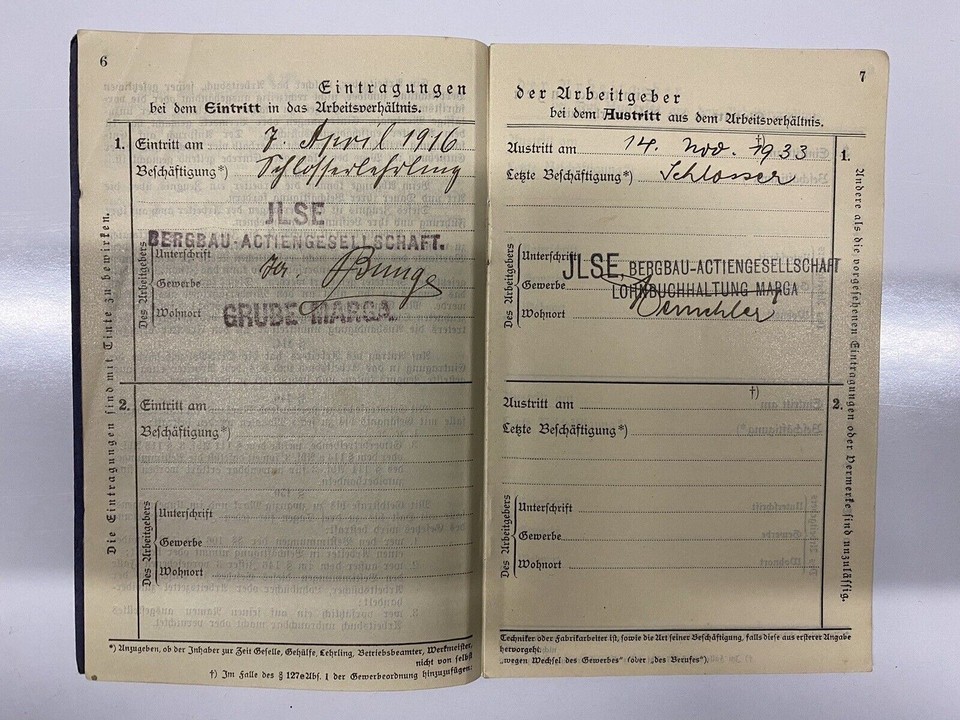 6
Eintragungen
bei dem Eintritt in das Arbeitsverhältnis.
Die Eintragungen sind mit Tinte zu bewirken.
1. Eintritt am 7. April 1916
Beschäftigung*) Schlosserlehrling
JLSE
BERGBAU-ACTIENGESELLSCHAFT.
Des Arbeitgebers
Unterschrift
Gewerbe Bunge
Wohnort
GRUBE MARGA.
2. Eintritt am
Beschäftigung*)
Des Arbeitgebers
Unterschrift
Gewerbe
Wohnort
*) Anzugeben, ob der Inhaber zur Zeit Geselle, Gehülfe, Lehrling, Betriebsbeamter, Werkmeister,
nicht von selbst
†) Im Falle des § 127e Abs. 1 der Gewerbeordnung hinzuzufügen:
7
der Arbeitgeber
bei dem Austritt aus dem Arbeitsverhältnis.
Austritt am 14. Nov. †) 1933 1.
Letzte Beschäftigung*) Schlosser
Des Arbeitgebers
Unterschrift
JLSE BERGBAU-ACTIENGESELLSCHAFT
Gewerbe
LOHNBUCHHALTUNG MARGA
Wohnort
Austritt am †) 2.
Letzte Beschäftigung*)
Des Arbeitgebers
Unterschrift
Gewerbe
Wohnort
Andere als die vorgesehenen Eintragungen oder Vermerke sind unzulässig.
Techniker oder Fabrikarbeiter ist, sowie die Art seiner Beschäftigung, falls diese aus ersterer Angabe
hervorgeht.
„wegen Wechsel des Gewerbes" (oder „des Berufes").